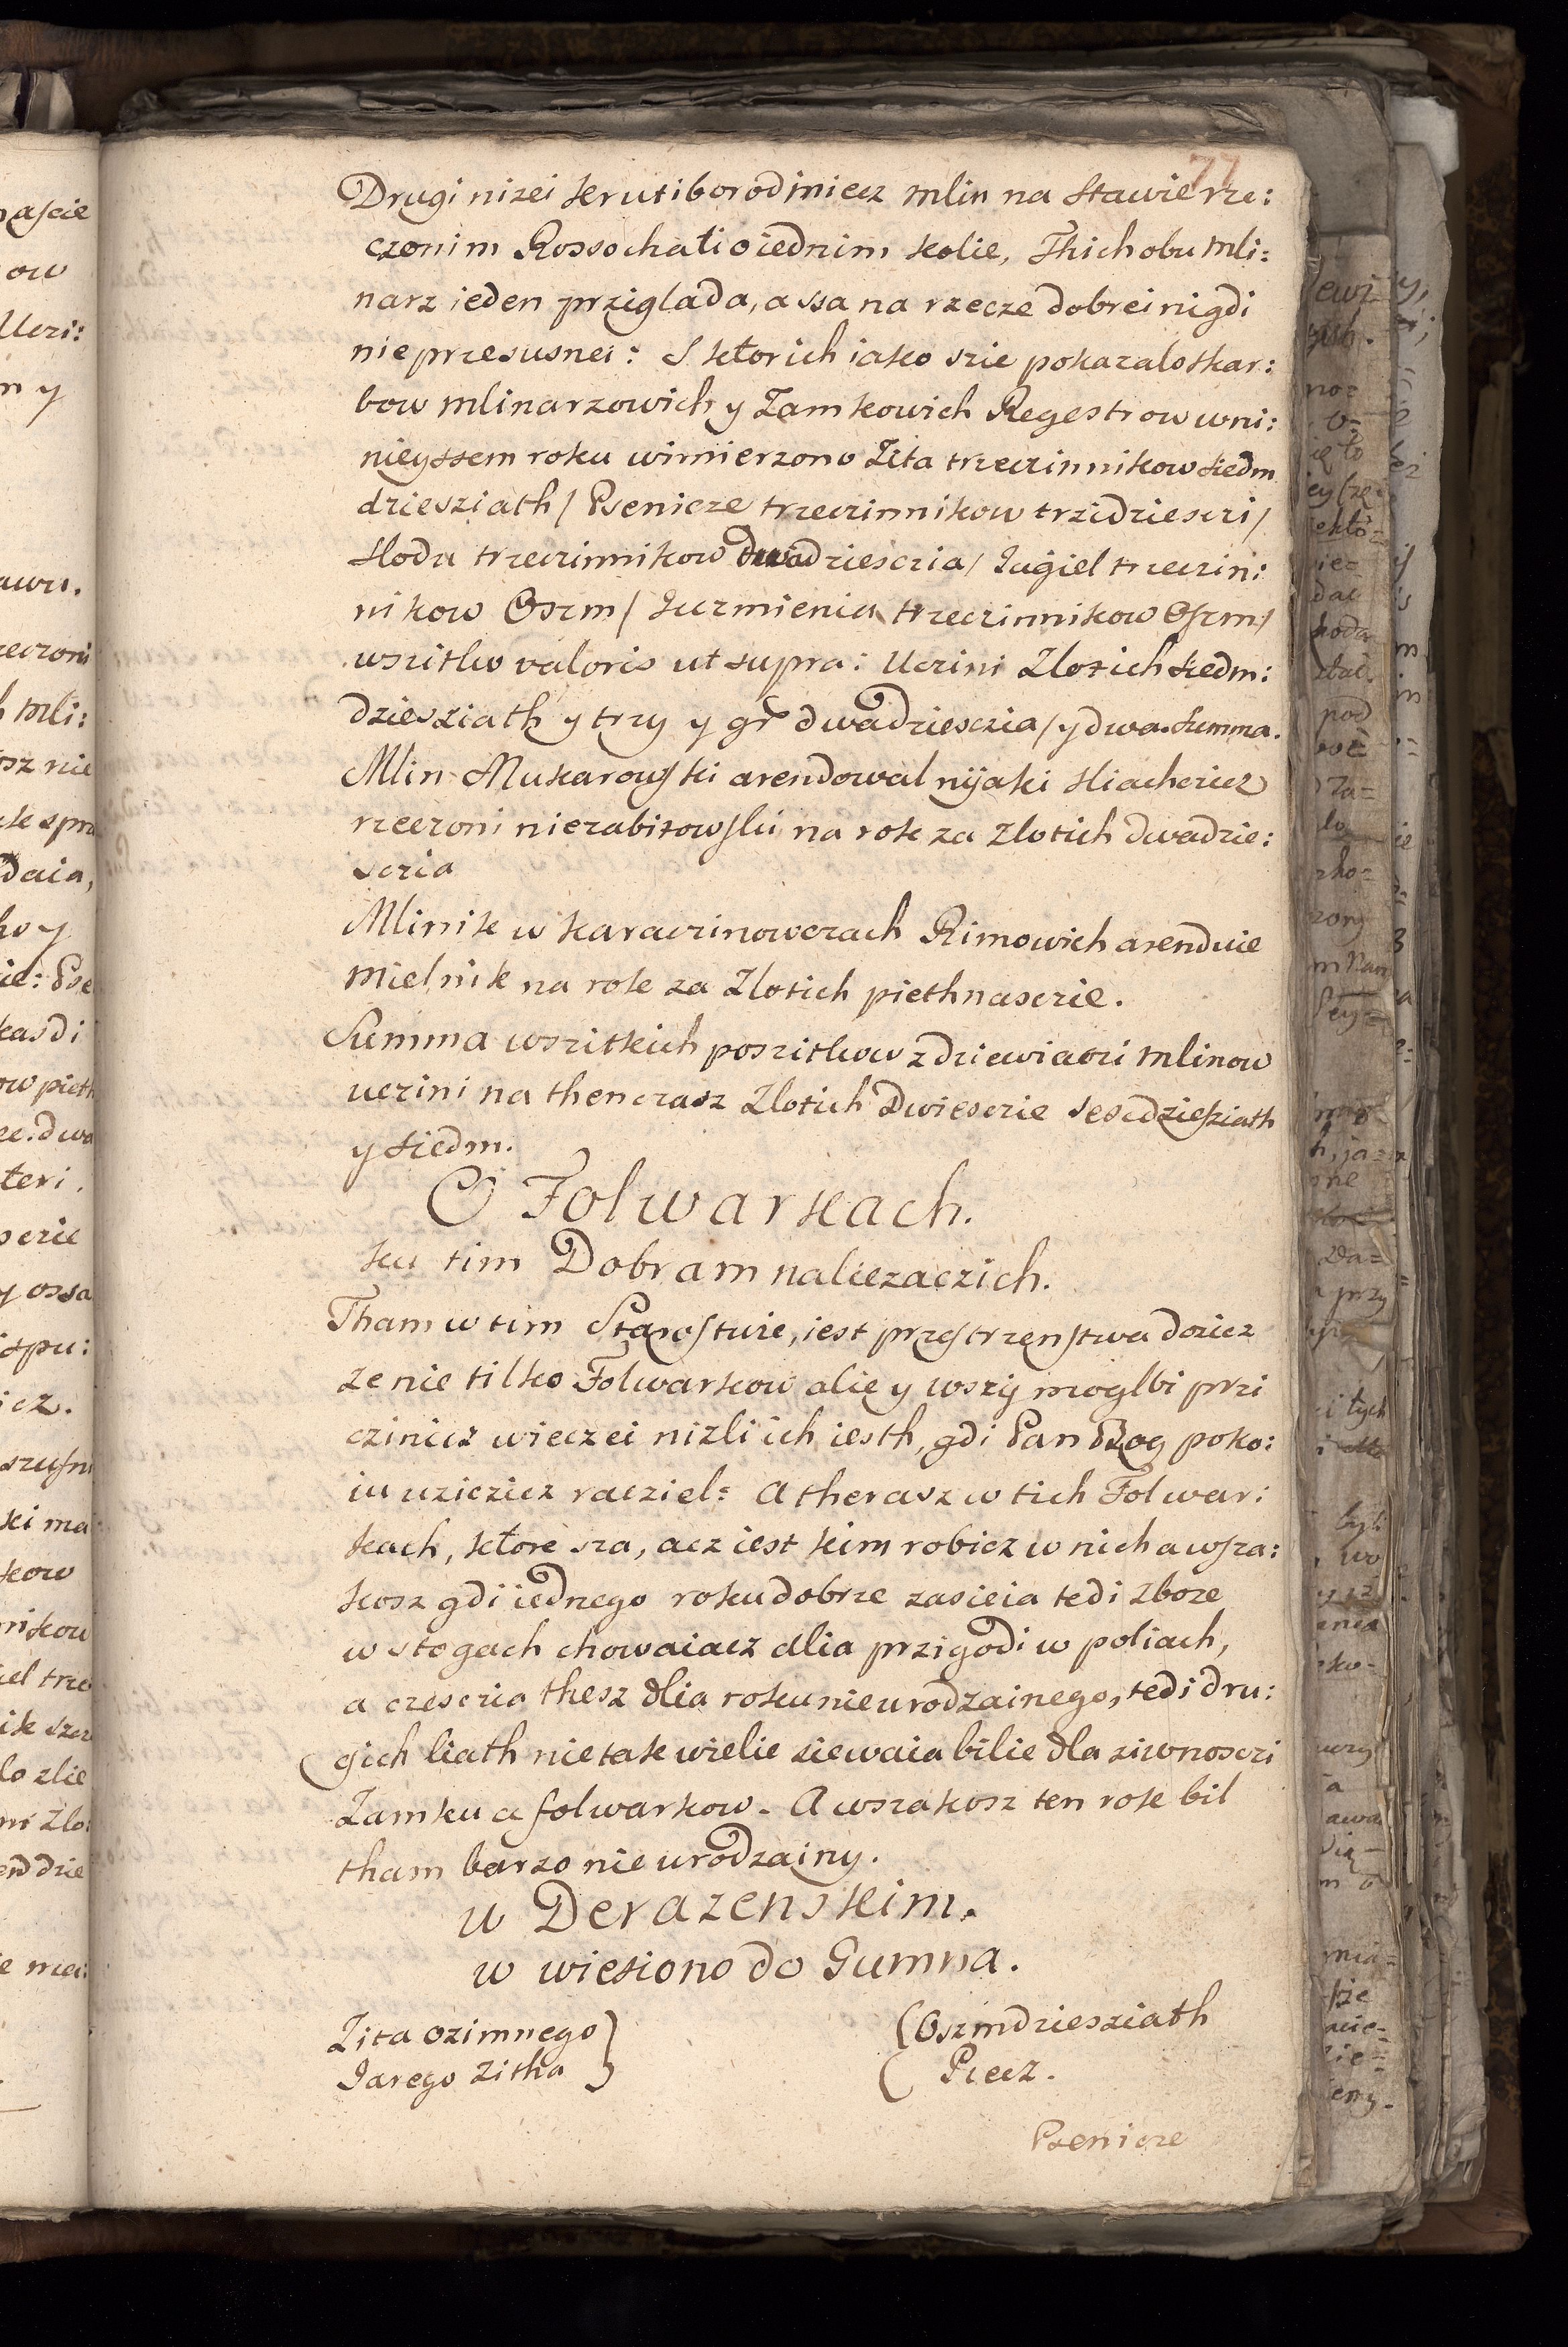 77
Drugi nizei Kerutiborodiniecz mlin na Stawie rze:
czonim Rossochati o iednim kolie, Thich obu mli:
narz ieden prziglada, a ssa na rzecze dobrei nigdi
nie przesusnei: S ktorich iako szie pokazalo skar:
bow mlinarzowich y Zamkowich Regestrow w ni:
nieyssem roku wimierzono Zita trzeczinnikow siedm
dziesziath / Psenicze trzeczinnikow trzidziesczi /
Slodu trzeczinnikow dwadziesczia / Jagiel trzeczin:
nikow Oszm / Jeczmienia trzeczinnikow Oszm /
wszitko valoris ut supra: Uczini Zlotich siedm:
dziesziath y trzy y gr dwadziesczia / y dwa. Summa.
Mlin Mukarowski arendowal nijaki Sliachcicz
rzeczoni niezabitowski na rok za Zlotich dwadzie:
sczia
Mlinik w Karaczinowczach Rimowich arenduie
Mielnik na rok za Zlotich piethnasczie.
Summa wszitkich poszitkow z dziewiaczi mlinow
uczini na thenczasz Zlotich Dwiesczie sescdziesziath
y siedm.
O Folwarkach.
ku tim Dobram naliezaczich.
Tham w tim Starostwie, iest przestrzenstwa dosicz
ze nie tilko Folwarkow alie y wszij moglbi przi
czinicz wieczei nizli ich iesth, gdi Pan Bog poko:
iu uzicicz racziel: A therasz w tich Folwar:
kach, ktore sza, acz iest kim robicz w nich a wsza:
kosz gdi iednego roku dobrze zasieia tedi zboze
w stogach chowaiacz dlia przigodi w poliach,
a czesczia thesz dlia roku nieurodzainego, tedi dru:
gich liath nie tak wielie siewaia bilie dla ziwnosczi
Zamku a folwarkow. A wszakosz ten rok bil
tham barzo nieurodzainy.
w Derazenskim.
w wiesiono do Gumna.
Zita ozimnego } ( Oszmdziesziath
Jarego Zitha } ( Piecz.
Psenicze